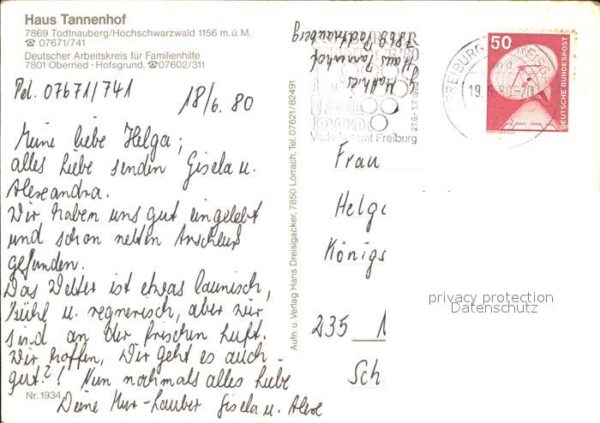 Haus Tannenhof
7869 Todtnauberg/Hochschwarzwald 1156 m.ü.M.
☎ 07671/741
Deutscher Arbeitskreis für Familienhilfe
7801 Oberried - Hofsgrund, ☎07602/311
Tel. 07671/741
18/6. 80
Meine liebe Helga;
alles Liebe senden Gisela u.
Alexandra.
Wir haben uns gut eingelebt
und schon netten Anschluß
gefunden.
Das Wetter ist etwas launisch,
kühl u. regnerisch, aber wir
sind an der frischen Luft.
Wir hoffen, Dir geht es auch
gut?! Nun nochmals alles Liebe
Deine Gisela u.
Nr. 1934
Aufn. u. Verlag Hans Dreisigacker, 7850 Lörrach, Tel. 07621/82491
Haus Tannenhof
7869 Todtnauberg
Freiburg
FREIBURG
19.
50
DEUTSCHE BUNDESPOST
Frau
Helga
Königs
235
Sch
privacy protection
Datenschutz